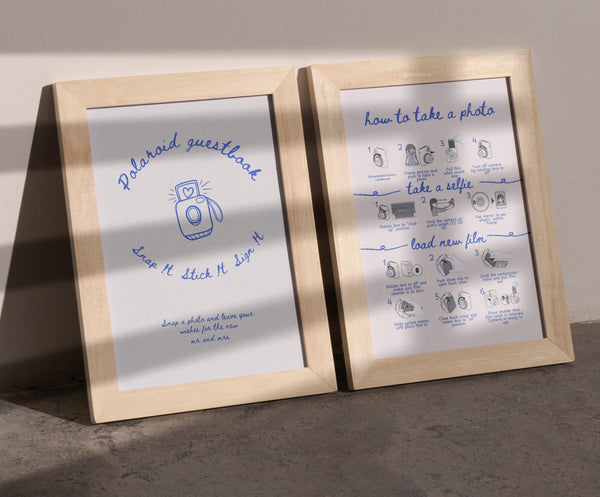 Polaroid guestbook
Snap It Stick It Sign It
Snap a photo and leave your
wishes for the new
mr and mrs.
how to take a photo
1
2
3
4
Frame picture and
push to take a
photo
Pull film
when sound
stop
Turn off camera
by rotating lens
to
take a selfie
1
2
3
Rotate lens to "close
up" position
Hold the camera at
arm's length
Use mirror to see
what's within
frame
load new film
1
2
3
Rotate lens to off and
make sure film
counter is at zero
Push down clip to
open back cover
Grab the rectangular
holes and
4
5
6
Align yellow marks
and place film in
Close back cover and
rotate lens to "on"
position
Press shutter
film cover is ejected.
Camera is ready to
use